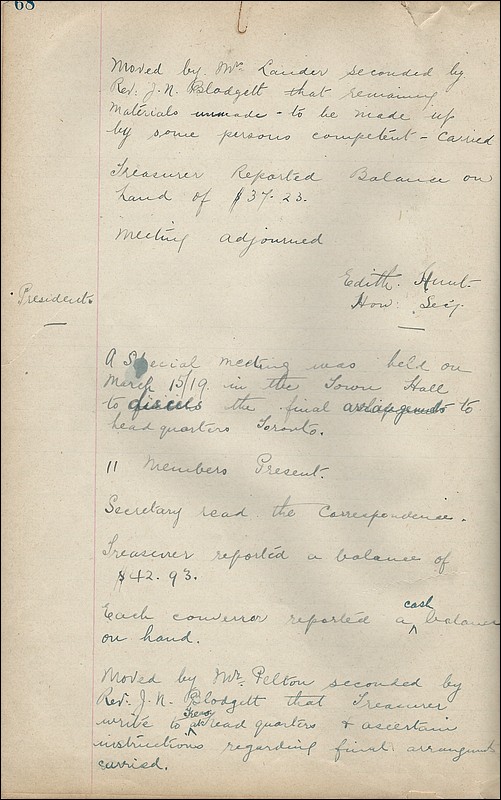 68
Moved by Mr. Lauder seconded by
Rev. J. N. Blodgett that remaining
materials unmade - to be made up
by some persons competent - Carried
Treasurer Reported Balance on
hand of $37.23.
Meeting adjourned
Edith. Hunt.
Hon: Secy.
President.
A Special meeting was held on
March 15/19. in the Town Hall
to discuss the final arrangements to
headquarters Toronto.
11 Members Present.
Secretary read the Correspondence.
Treasurer reported a balance of
$42.93.
Each convenor reported a cash balance
on hand.
Moved by Mr. Pelton seconded by
Rev. J. N. Blodgett that Treasurer
write to headquarters & ascertain
instructions regarding final arrangments
carried.